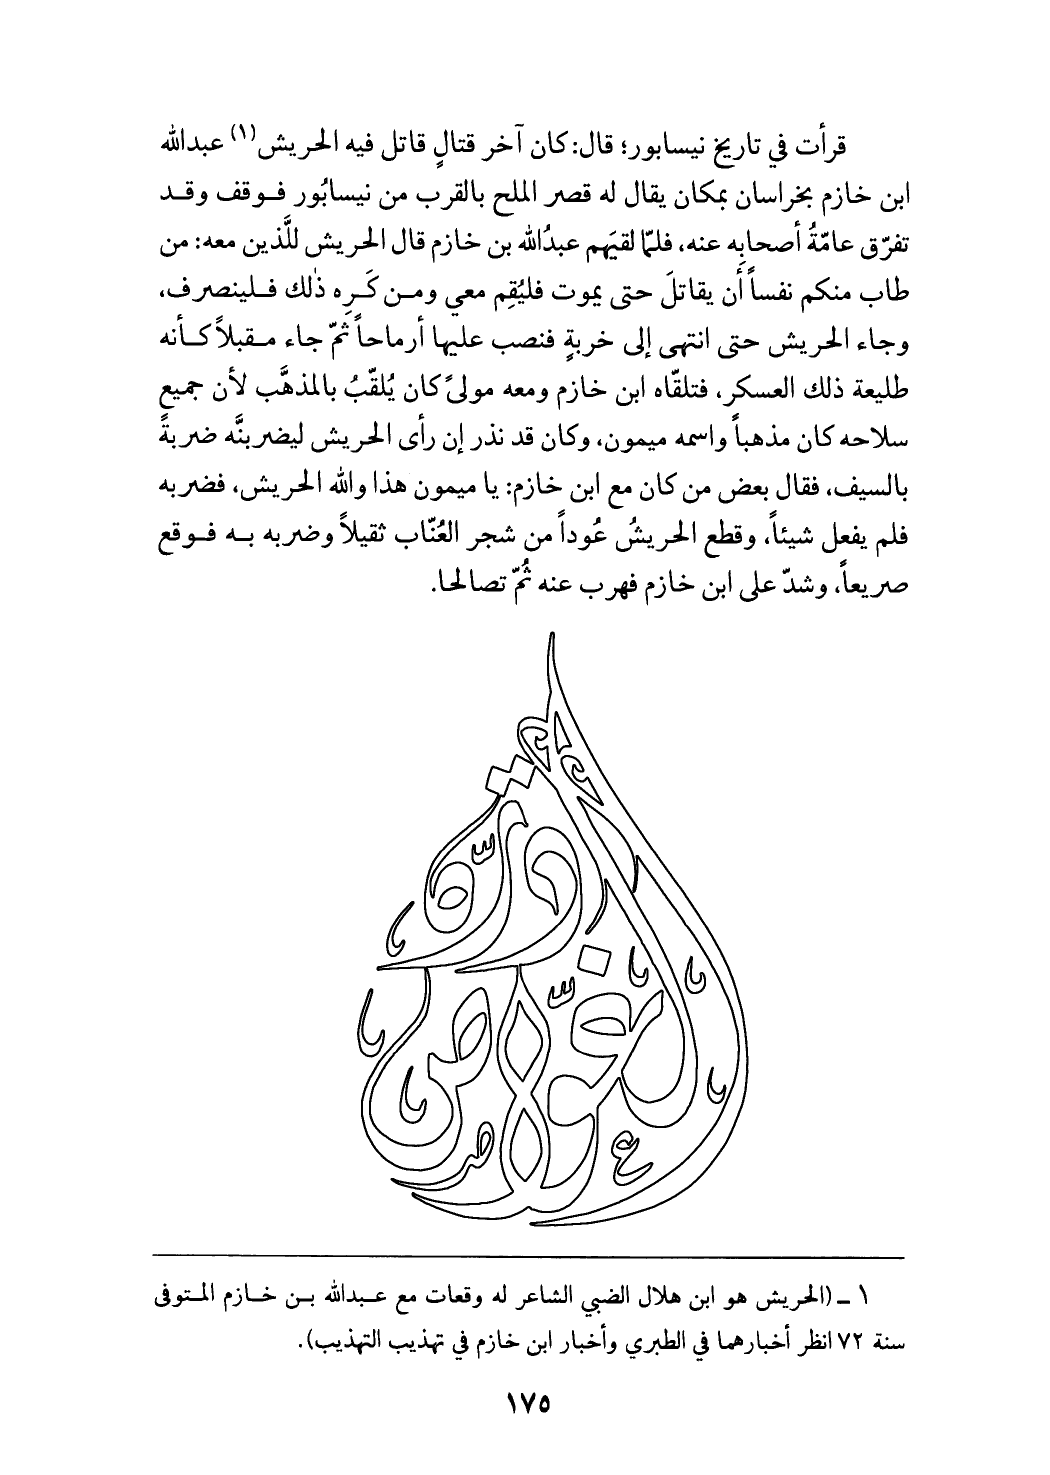 قرأت في تاريخ نيسابور؛ قال: كان آخر قتالٍ قاتل فيه الحريش(١) عبدالله
ابن خازم بخراسان بمكان يقال له قصر الملح بالقرب من نيسابُور فـوقف وقـد
تفرّق عامّةُ أصحابِه عنه، فلمّا لقيَهم عبدُالله بن خازم قال الحريش للَّذين معه: من
طاب منكم نفساً أن يقاتلَ حتى يموت فليُقِم معي ومـن كَـرِه ذٰلك فـلينصرف،
وجاء الحريش حتى انتهى إلى خربةٍ فنصب عليها أرماحاً ثمّ جاء مـقبلاً كـأنه
طليعة ذلك العسكر، فتلقّاه ابن خازم ومعه مولىً كان يُلقّبُ بالمذهَّب لأن جميع
سلاحه كان مذهباً واسمه ميمون، وكان قد نذر إن رأى الحريش ليضربنَّه ضربةً
بالسيف، فقال بعض من كان مع ابن خازم: يا ميمون هذا والله الحريش، فضربه
فلم يفعل شيئاً، وقطع الحريشُ عُوداً من شجر العُنّاب ثقيلاً وضربه بـه فـوقع
صريعاً، وشدّ على ابن خازم فهرب عنه ثُمّ تصالحا.
درّة
الغوّاص
١ ـ (الحريش هو ابن هلال الضبي الشاعر له وقعات مع عـبدالله بـن خـازم المـتوفى
سنة ٧٢ انظر أخبارهما في الطبري وأخبار ابن خازم في تهذيب التهذيب).
١٧٥